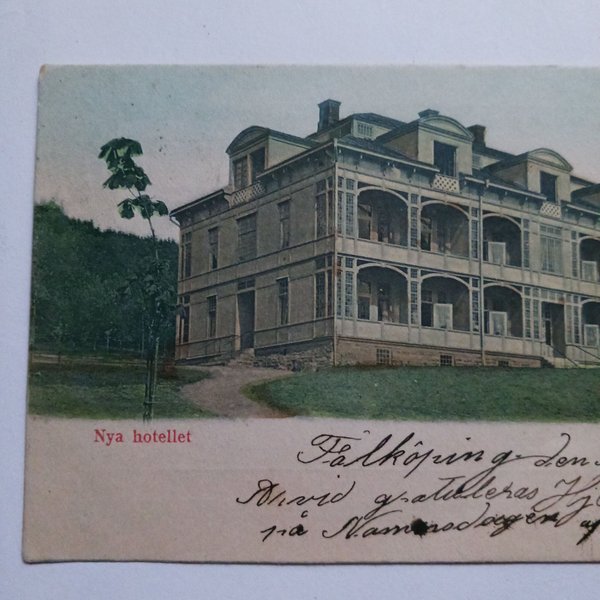 Nya hotellet
Fālköping den
Arvid gratuleras Hj
på Namnsdagen af